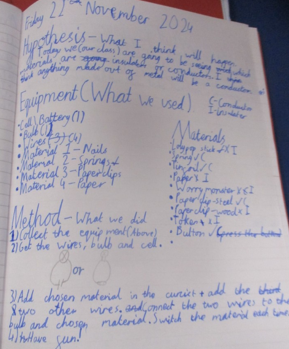 Friday 22nd November 2024
Hypothesis - What I think will happen
Today we (our class) are going to be which
materials are insulator or conductor. I
think anything made out of metal will be a conductor
Equipment (What we used)
C-Conductor
I-Insulator
• Cell / Battery (1)
• Bulb (1)
• Wires (4)
• Material 1 - Nails
• Material 2 - Springs
• Material 3 - Paperclips
• Material 4 - Paper
Materials
• Lolly stick X I
• Spring ✓ C
• Tin foil ✓ C
• Paper X I
• Worry monster X I
• Paperclip - steel ✓ C
• Paperclip - wood X I
• Token X I
• Button ✓ C
Method - What we did
1) Collect the equipment (Above)
2) Get the wires, bulb and cell.
or
3) Add chosen material in the circuit + add the
two other wires. and connect the two wires to the
bulb and chosen material. Switch the material each time
4) Have fun!